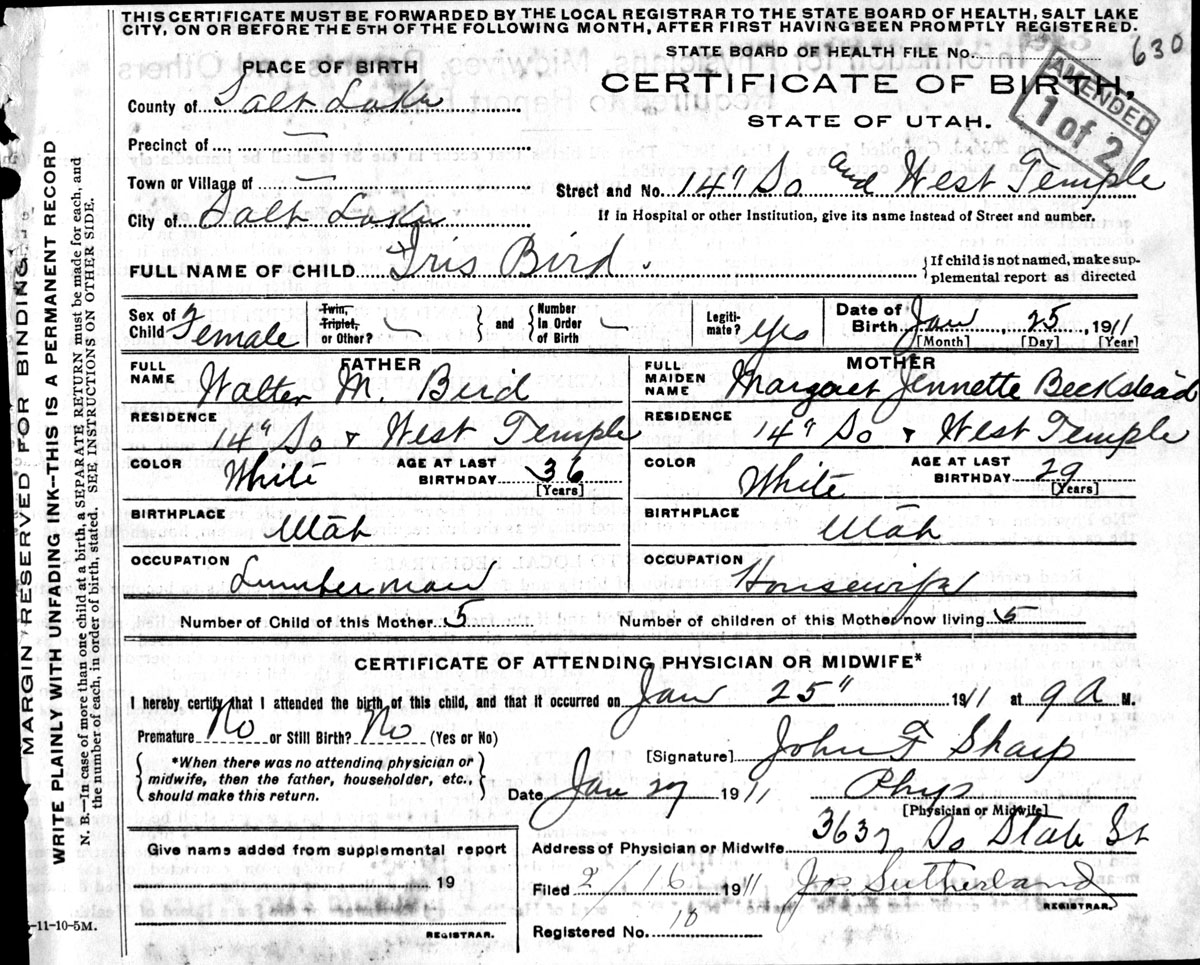 THIS CERTIFICATE MUST BE FORWARDED BY THE LOCAL REGISTRAR TO THE STATE BOARD OF HEALTH, SALT LAKE
CITY, ON OR BEFORE THE 5TH OF THE FOLLOWING MONTH, AFTER FIRST HAVING BEEN PROMPTLY REGISTERED.
STATE BOARD OF HEALTH FILE No. 630
PLACE OF BIRTH
CERTIFICATE OF BIRTH,
STATE OF UTAH.
AMENDED
1 of 2
County of Salt Lake
Precinct of
Town or Village of
Street and No. 14" So and West Temple
City of Salt Lake
If in Hospital or other Institution, give its name instead of Street and number.
FULL NAME OF CHILD Iris Bird.
If child is not named, make sup-
plemental report as directed
Sex of Child Female
Twin, Triplet, or Other?
and
Number In Order of Birth
Legiti-mate? yes
Date of Birth Jan, 25, 1911
[Month] [Day] [Year]
FATHER
MOTHER
FULL NAME Walter M. Bird
FULL MAIDEN NAME Margaret Jennette Beckstead
RESIDENCE
14" So + West Temple
RESIDENCE
14" So + West Temple
COLOR White
AGE AT LAST BIRTHDAY 36 [Years]
COLOR White
AGE AT LAST BIRTHDAY 29 [Years]
BIRTHPLACE Utah
BIRTHPLACE Utah
OCCUPATION Lumberman
OCCUPATION Housewife
Number of Child of this Mother 5
Number of children of this Mother now living 5
CERTIFICATE OF ATTENDING PHYSICIAN OR MIDWIFE*
I hereby certify that I attended the birth of this child, and that it occurred on Jan 25" 1911 at 9 A M.
Premature No or Still Birth? No (Yes or No)
*When there was no attending physician or
midwife, then the father, householder, etc.,
should make this return.
[Signature] John F Sharp
Date Jan 27 1911
Phys
[Physician or Midwife]
Address of Physician or Midwife 3637 So State St
Give name added from supplemental report
19
REGISTRAR.
Filed 2/16 1911 Jos Sutherland
REGISTRAR.
Registered No. 18
-11-10-5M.
MARGIN RESERVED FOR BINDING
WRITE PLAINLY WITH UNFADING INK--THIS IS A PERMANENT RECORD
N. B.--In case of more than one child at a birth, a SEPARATE RETURN must be made for each, and
the number of each, in order of birth, stated. SEE INSTRUCTIONS ON OTHER SIDE.